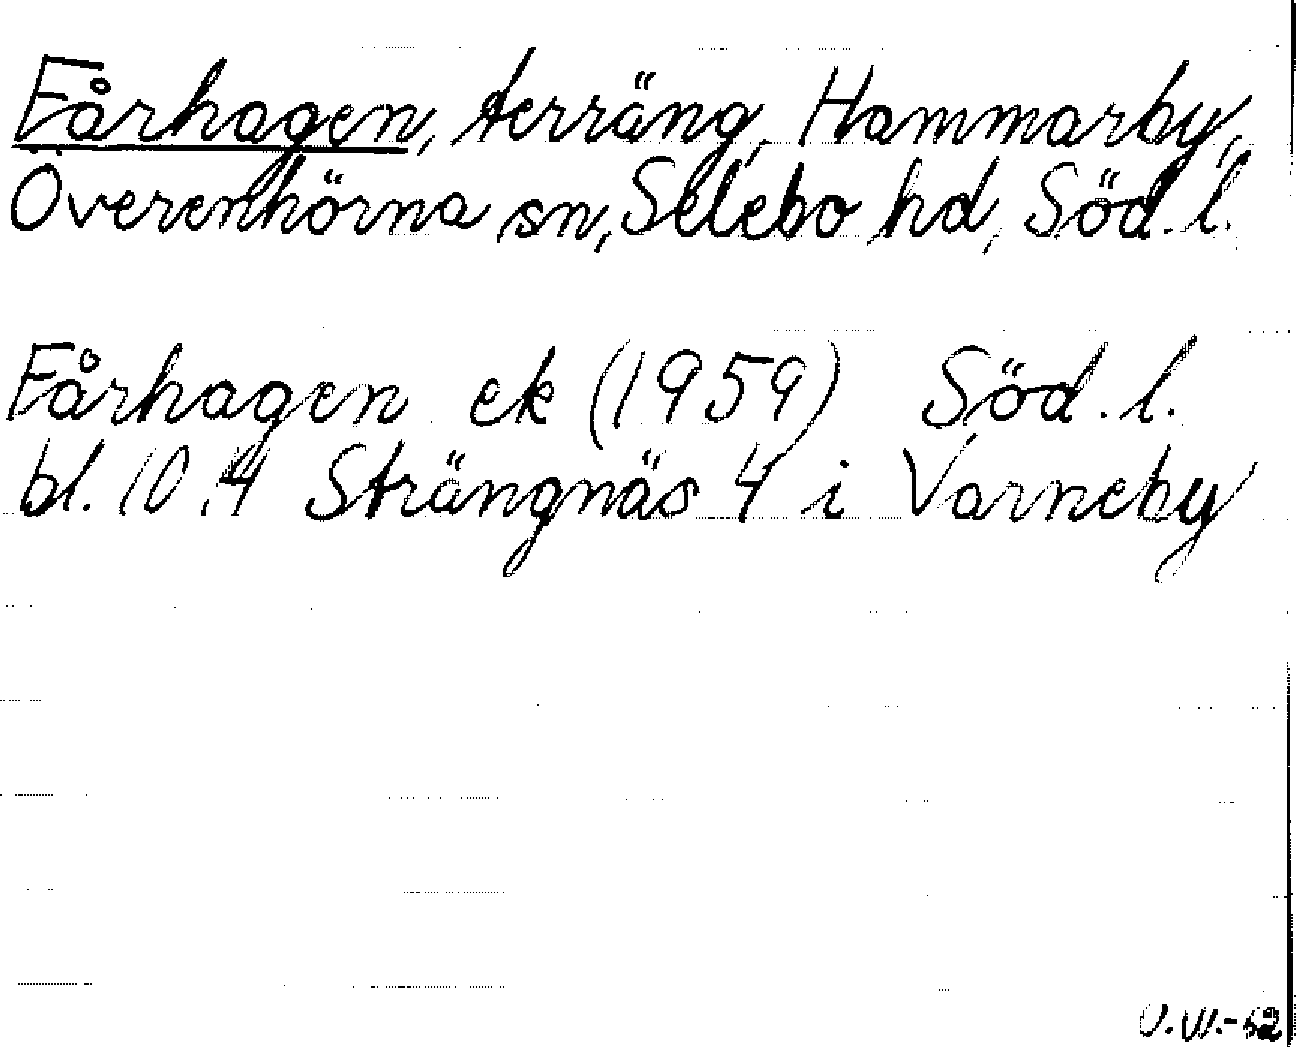 Fårhagen, terräng, Hammarby,
Överenhörna sn, Selebo hd, Söd. l.
Fårhagen ek (1959) Söd. l.
bl. 10.4 Strängnäs 4 i Varneby
V.W.-62